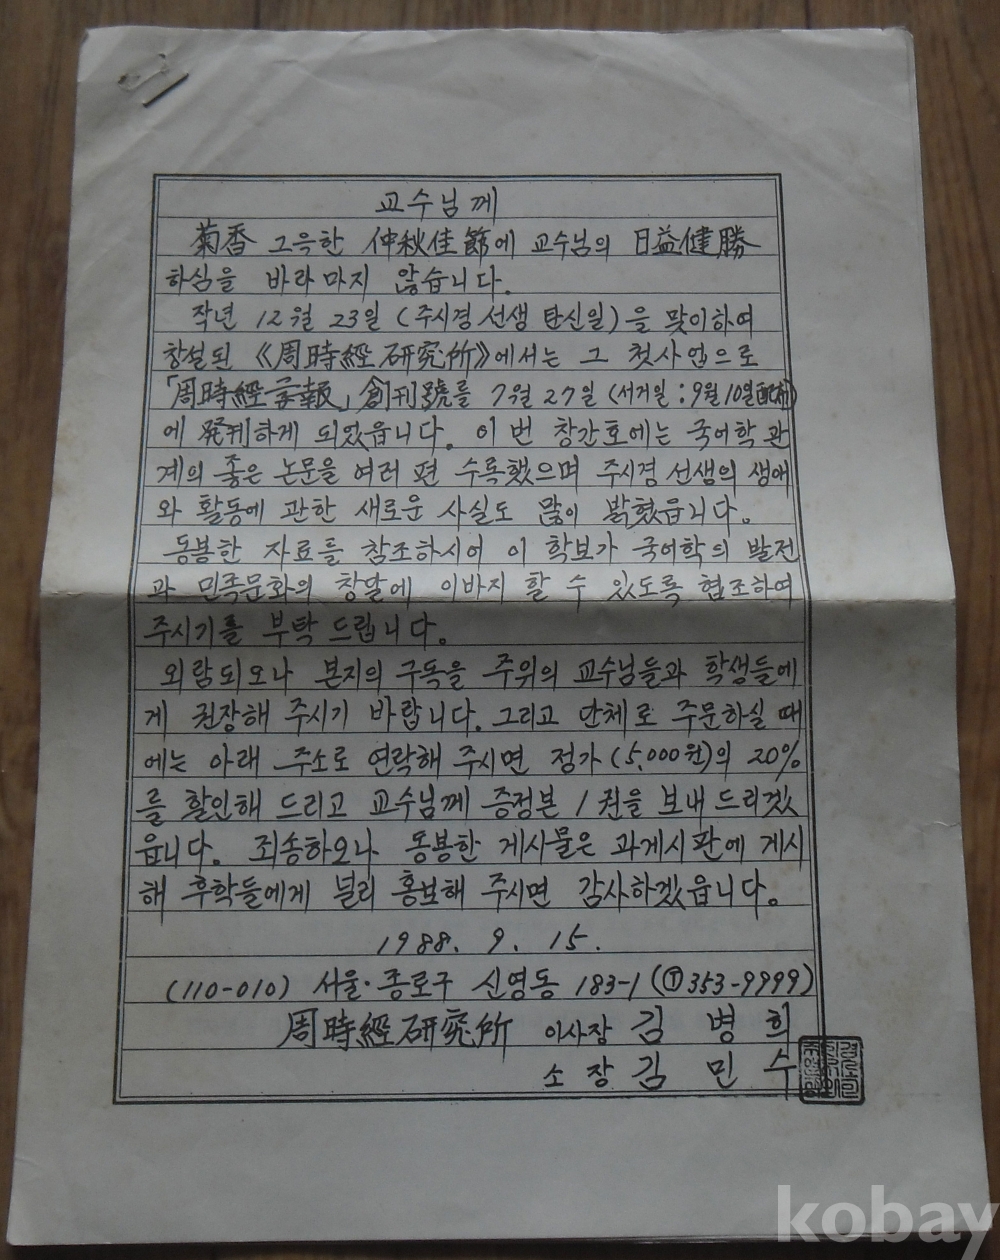 교수님께
菊香 그윽한 仲秋佳節에 교수님의 日益健勝
하심을 바라마지 않습니다.
작년 12월 23일 (주시경 선생 탄신일)을 맞이하여
창설된 《周時經研究所》에서는 그 첫사업으로
「周時經學報」創刊號를 7월 27일 (서거일 : 9월 10일 配布)
에 発刊하게 되었읍니다. 이번 창간호에는 국어학 관
계의 좋은 논문을 여러 편 수록했으며 주시경 선생의 생애
와 활동에 관한 새로운 사실도 많이 밝혔읍니다.
동봉한 자료를 참조하시어 이 학보가 국어학의 발전
과 민족문화의 창달에 이바지 할 수 있도록 협조하여
주시기를 부탁 드립니다.
외람되오나 본지의 구독을 주위의 교수님들과 학생들에
게 권장해 주시기 바랍니다. 그리고 단체로 주문하실 때
에는 아래 주소로 연락해 주시면 정가 (5,000원)의 20%
를 할인해 드리고 교수님께 증정본 1권을 보내 드리겠
읍니다. 죄송하오나 동봉한 게시물은 과게시판에 게시
해 후학들에게 널리 홍보해 주시면 감사하겠읍니다.
1988. 9. 15.
(110-010) 서울·종로구 신영동 183-1 (Ⓣ353-9999)
周時經研究所 이사장 김 병 희
소장 김 민 수
kobay